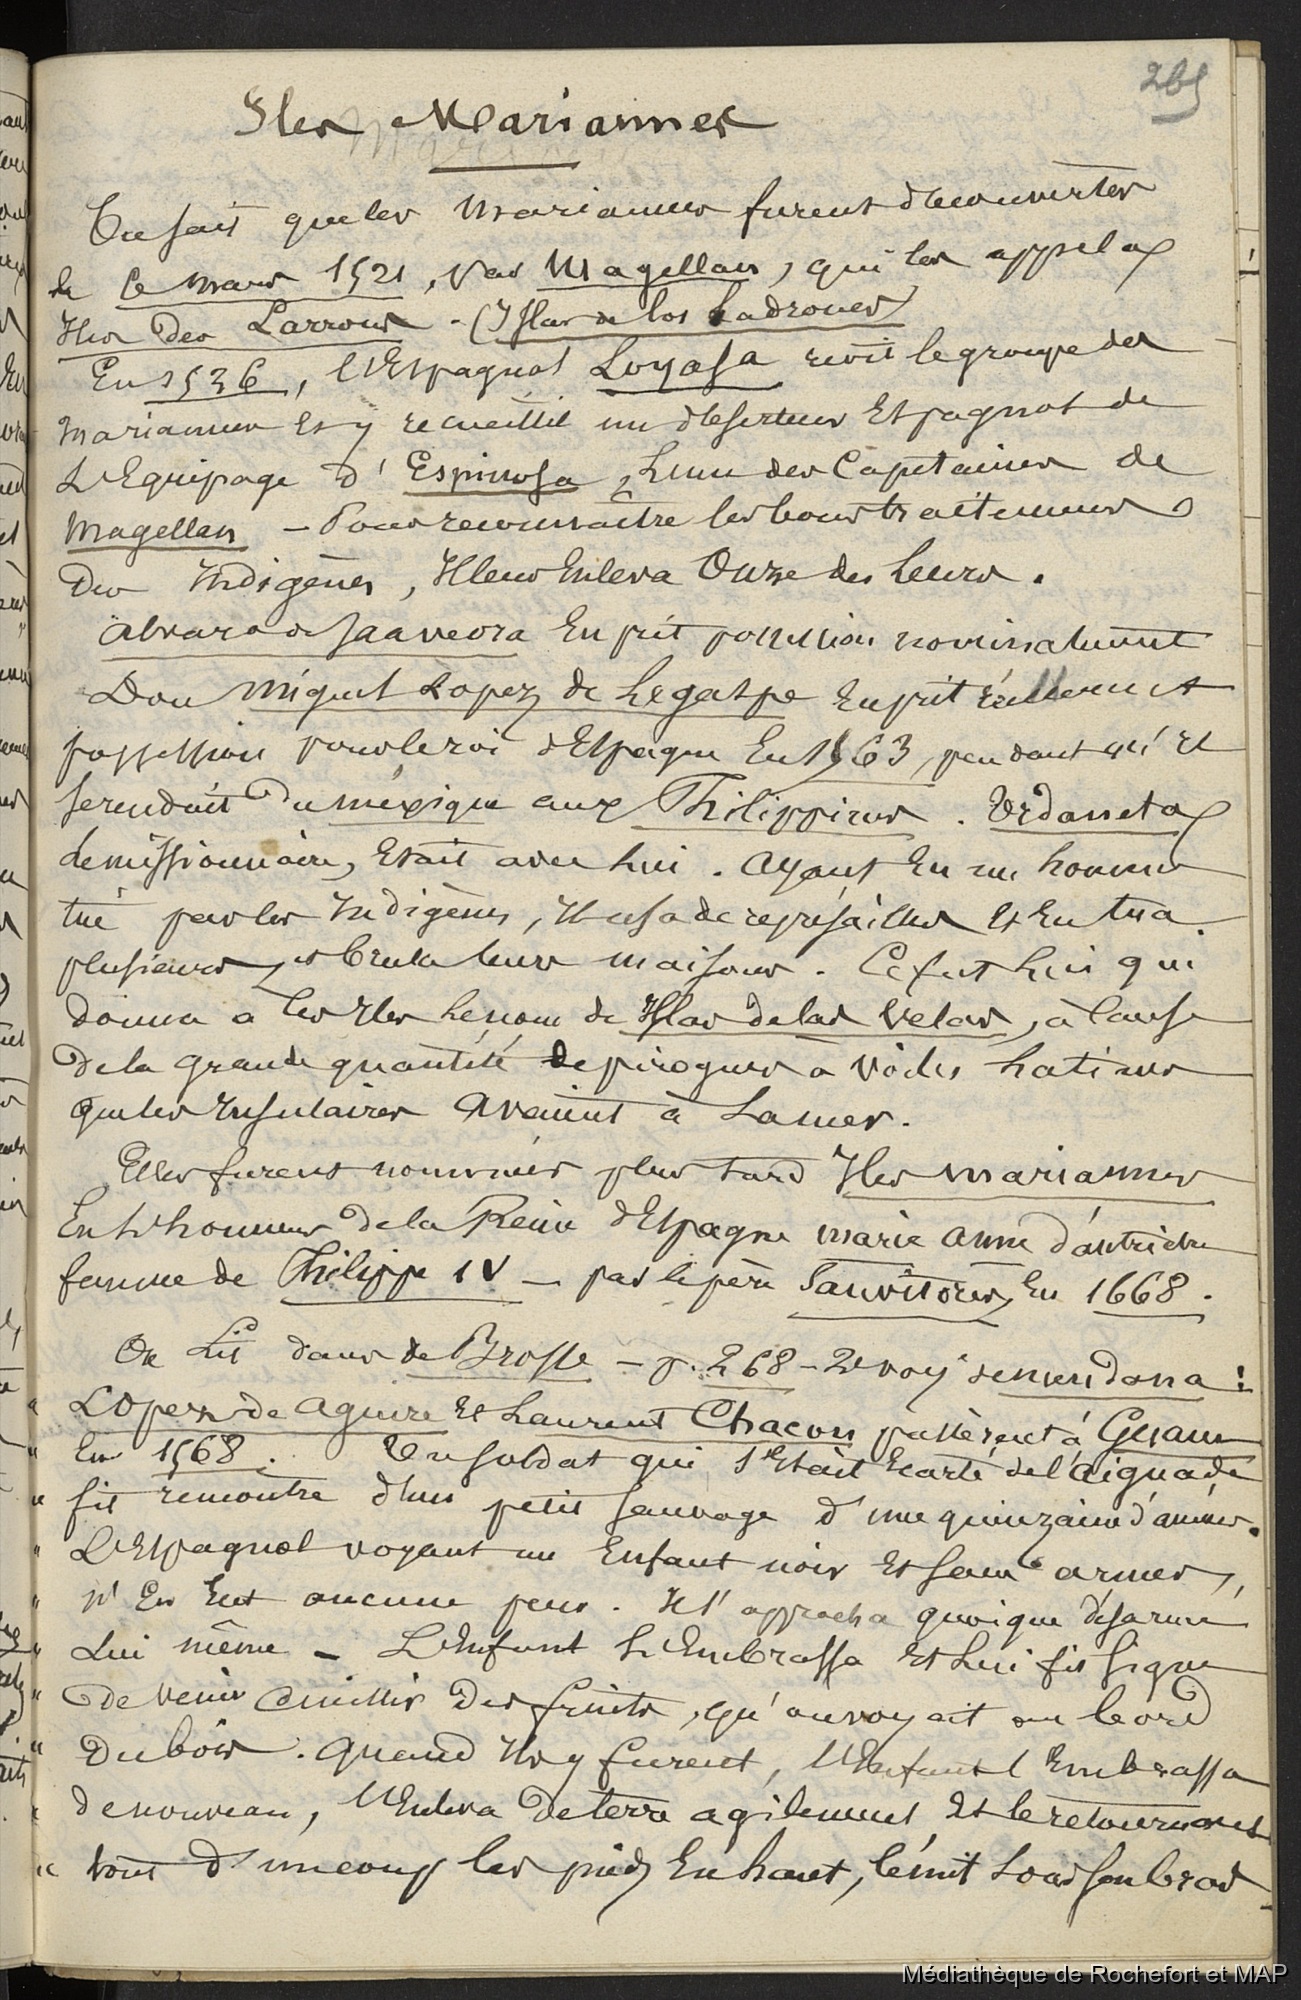 265
Iles Mariannes
On sait que les Mariannes furent découvertes
le 6 mars 1521, par Magellan, qui les appela
Iles des Larrons - (Islas de los Ladrones)
En 1526, l'Espagnol Loyasa revit le groupe des
Mariannes et y recueillit un déserteur Espagnol de
L'Equipage d'Espinosa, l'un des Capitaines de
Magellan - Pour reconnaitre les bons traitemens
Des Indigènes, Il leur Enleva Onze des Leurs.
Alvaro de Saavedra En prit possession nominalement
Don Miguel Lopez de Legaspe En prit réellement
possession pour le roi d'Espagne En 1563, pendant qu'il
se rendait Du méxique aux Philippines. Urdaneta
le missionnaire, Etait avec lui. Ayant Eu un homme
tué par les Indigènes, Il usa de représailles Et En tua
plusieurs, et brula leurs maisons. Ce fut lui qui
donna a ces Iles le nom de Islas de las Velas, à cause
De la grande quantité de pirogues à voiles latines
que les Insulaires avaient à La mer.
Elles furent nommées plus tard Iles mariannes
En L'honneur De la Reine d'Espagne marie anne d'autriche
femme de Philippe IV - par le père Sanvitores, En 1668.
On Lit dans de Brosse - p. 268 - 2e voy. de mendana:
" Lopez de aguire Et Laurent Chacon passèrent à Guam
" En 1568. Un soldat qui s'Etait Ecarté de l'aiguade
" fit rencontre d'un petit sauvage d'une quinzaine d'années.
" L'Espagnol voyant un Enfant noir Et sans armes,
" N'En Eut aucune peur. Il s'approcha quoique désarmé
" Lui même - L'Enfant L'Embrassa Et Lui fit signe
" De venir Cueillir Des fruits, qu'on voyait au bord
" Du bois. Quand Ils y furent, l'Enfant l'Embrassa
" de nouveau, l'Enleva De terre agilement Et le retournant
" tout d'un coup les pieds En haut, le mit sous son bras
Médiathèque de Rochefort et MAP